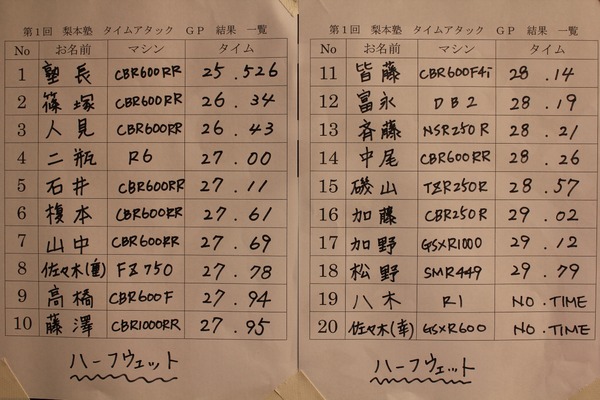 第1回 梨本塾 タイムアタック GP 結果 一覧
No お名前 マシン タイム
1 塾長 CBR600RR 25.526
2 篠塚 CBR600RR 26.34
3 人見 CBR600RR 26.43
4 二瓶 R6 27.00
5 石井 CBR600RR 27.11
6 榎本 CBR600RR 27.61
7 山中 CBR600RR 27.69
8 佐々木(重) FZ750 27.78
9 高橋 CBR600F 27.94
10 藤澤 CBR1000RR 27.95
ハーフウェット
第1回 梨本塾 タイムアタック GP 結果 一覧
No お名前 マシン タイム
11 皆藤 CBR600F4i 28.14
12 富永 DB2 28.19
13 斉藤 NSR250R 28.21
14 中尾 CBR600RR 28.26
15 磯山 TZR250R 28.57
16 加藤 CBR250R 29.02
17 加野 GSXR1000 29.12
18 松野 SMR449 29.79
19 八木 R1 NO.TIME
20 佐々木(幸) GSXR600 NO.TIME
ハーフウェット